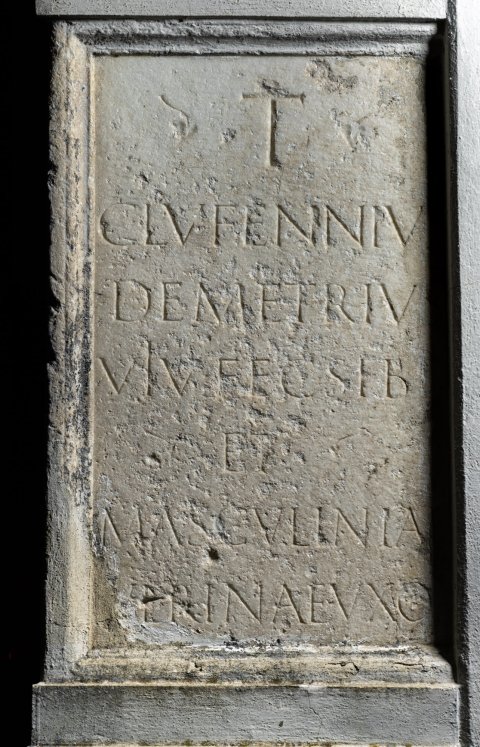 T
CL V FENNIV
DEMETRIV
VIV FEC SIB
ET
MASCVLINIA
TRINAE VXO